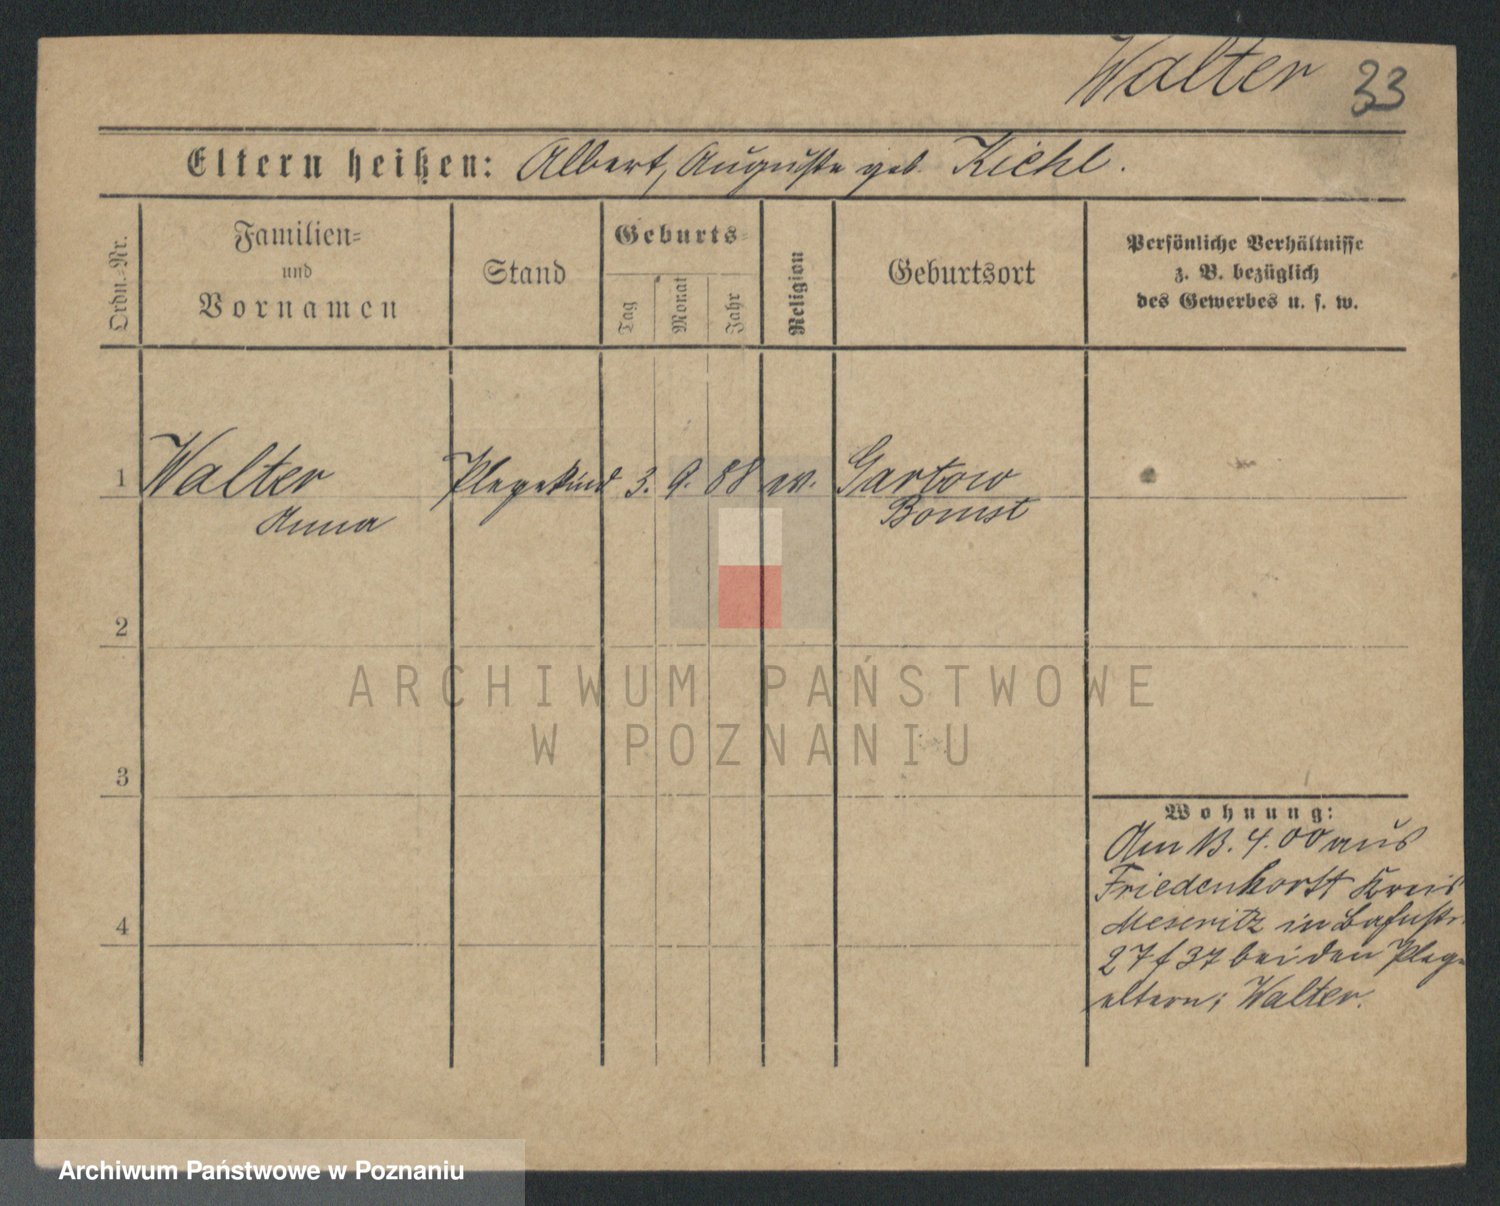 Walter 33
Eltern heißen: Albert, Auguste geb. Kiehl.
Ordn.-Nr.
Familien-
und
Vornamen
Stand
Geburts-
Tag
Monat
Jahr
Religion
Geburtsort
Persönliche Verhältnisse
z. B. bezüglich
des Gewerbes u. s. w.
1 Walter Plegekind 3. 9. 88 ev. Gartow
Anna Bomst
2
3
4
Wohnung:
Am 13. 4. 00 aus
Friedenhorst Kreis
Meseritz in
27 f 37 bei den Plege
eltern; Walter.
ARCHIWUM PAŃSTWOWE
W POZNANIU
Archiwum Państwowe w Poznaniu